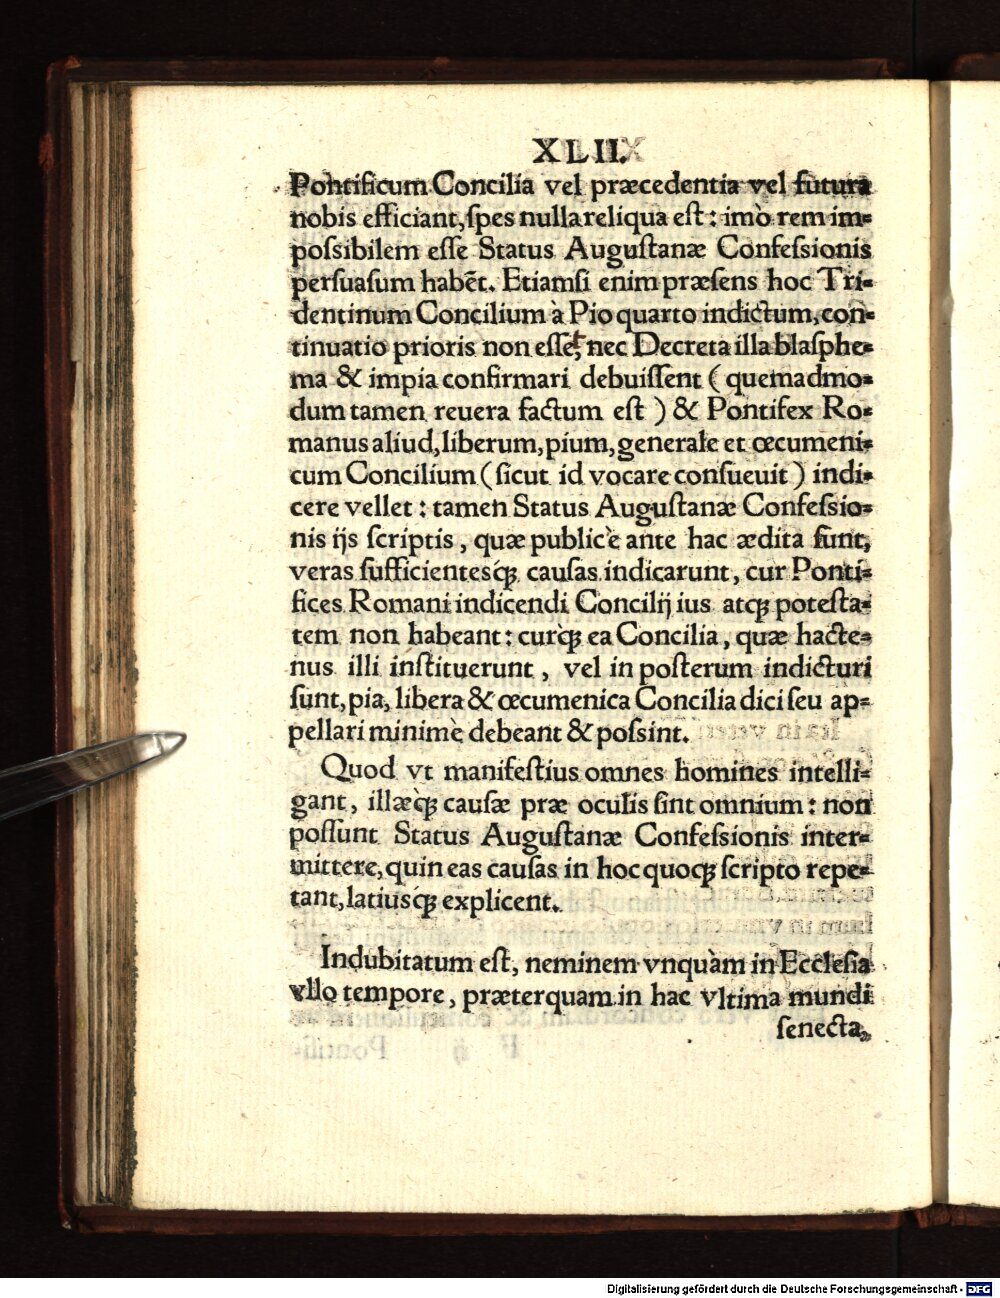 XLII.
Pontificum Concilia vel præcedentia vel futura
nobis efficiant, ſpes nulla reliqua eſt: imò rem im⸗
poſsibilem eſſe Status Auguſtanæ Confeſsionis
perſuaſum habēt. Etiamſi enim præſens hoc Tri⸗
dentinum Concilium à Pio quarto indictum, con⸗
tinuatio prioris non eſſet, nec Decreta illa blaſphe⸗
ma & impia confirmari debuiſſent ( quemadmo⸗
dum tamen reuera factum eſt ) & Pontifex Ro⸗
manus aliud, liberum, pium, generale et œcumeni⸗
cum Concilium ( ſicut id vocare conſueuit ) indi⸗
cere vellet: tamen Status Auguſtanæ Confeſsio⸗
nis ijs ſcriptis, quæ publicè ante hac ædita ſunt,
veras ſufficientesq́ꝫ cauſas indicarunt, cur Ponti⸗
fices Romani indicendi Concilij ius atqꝫ poteſta⸗
tem non habeant: curq̀ꝫ ea Concilia, quæ hacte⸗
nus illi inſtituerunt, vel in poſterum indicturi
ſunt, pia, libera & œcumenica Concilia dici ſeu ap⸗
pellari minimè debeant & poſsint.
Quod vt manifeſtius omnes homines intelli⸗
gant, illæq̀ꝫ cauſæ præ oculis ſint omnium: non
poſſunt Status Auguſtanæ Confeſsionis inter⸗
mittere, quin eas cauſas in hoc quoqꝫ ſcripto repe⸗
tant, latiusq́ꝫ explicent.
Indubitatum eſt, neminem vnquàm in Eccleſia
vllo tempore, præterquam in hac vltima mundi
ſenecta,
Digitalisierung gefördert durch die Deutsche Forschungsgemeinschaft - DFG